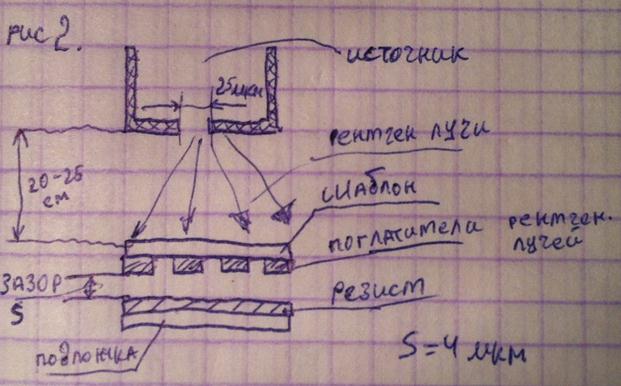 рис 2.
источник
25мкм
рентген лучи
20-25
см
шаблон
поглатители рентген.
лучей
ЗАЗОР
S
резист
подложка
S=4 мкм